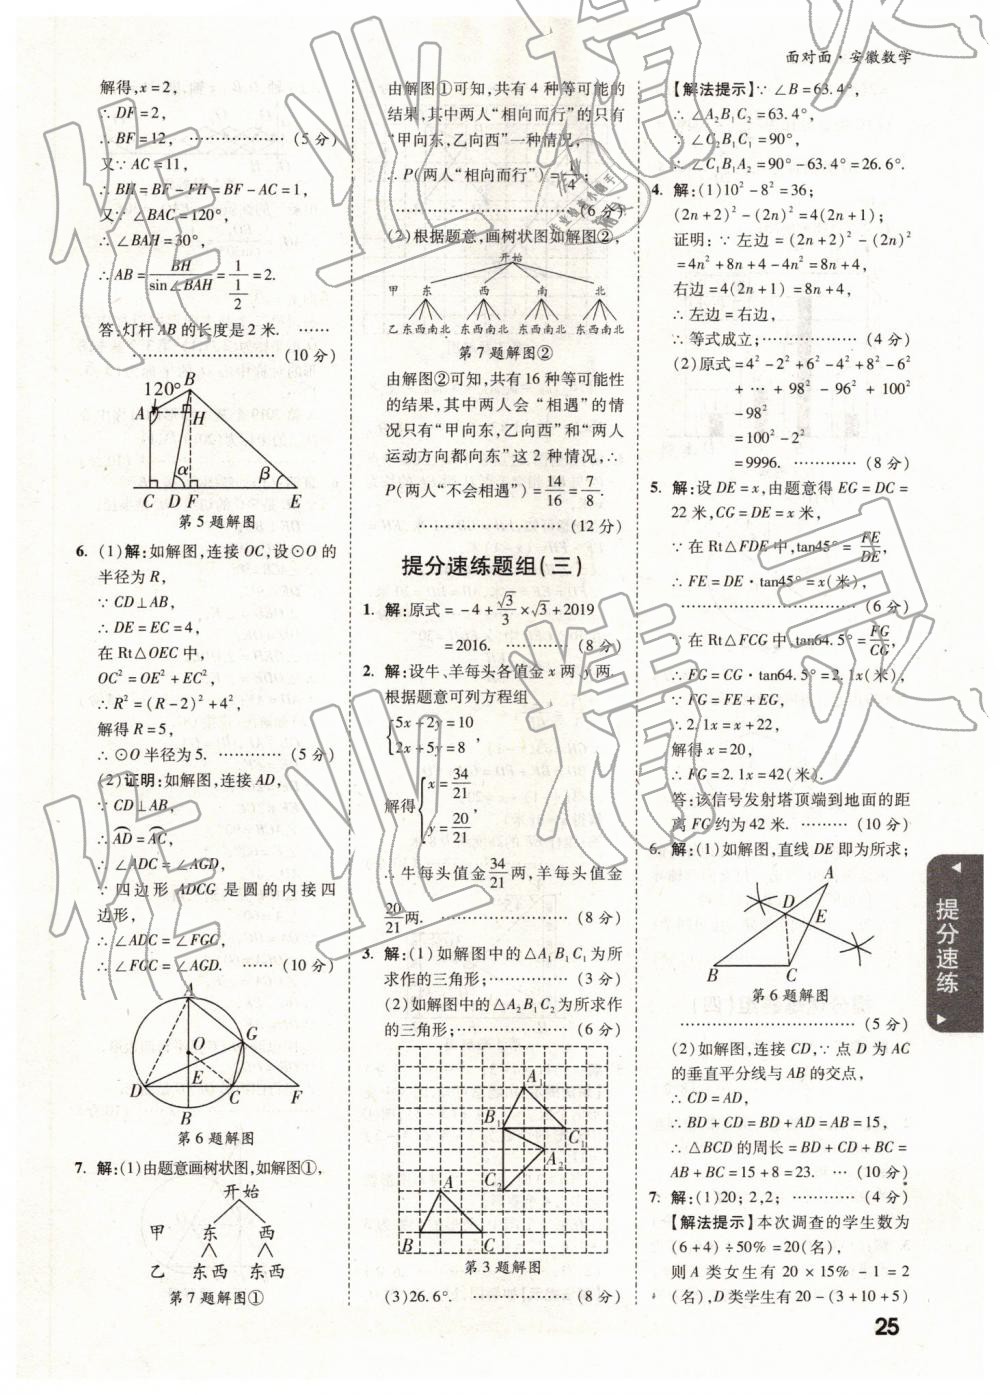 面对面·安徽数学
解得,x=2,
∴DF=2,
∴BF=12, ……………… (5分)
又∵AC=11,
∴BH=BF-FH=BF-AC=1,
又∵∠BAC=120°,
∴∠BAH=30°,
∴AB=BH/sin∠BAH=1/(1/2)=2.
答:灯杆AB的长度是2米. ……
…………………… (10分)
120° B A H α β C D F E
第5题解图
6. (1)解:如解图,连接OC,设⊙O的
半径为R,
∵CD⊥AB,
∴DE=EC=4,
在Rt△OEC中,
OC²=OE²+EC²,
∴R²=(R-2)²+4²,
解得R=5,
∴⊙O半径为5. ………… (5分)
(2)证明:如解图,连接AD,
∵CD⊥AB,
∴AD=AC,
∴∠ADC=∠AGD,
∵四边形ADCG是圆的内接四
边形,
∴∠ADC=∠FGC,
∴∠FGC=∠AGD. …… (10分)
A G O D E C F B
第6题解图
7. 解:(1)由题意画树状图,如解图①,
开始
甲 东 西
乙 东西 东西
第7题解图①
由解图①可知,共有4种等可能的
结果,其中两人“相向而行”的只有
“甲向东,乙向西”一种情况,
∴P(两人“相向而行”)=1/4;
…………………… (6分)
(2)根据题意,画树状图如解图②,
开始
甲 东 西 南 北
乙东西南北 东西南北 东西南北 东西南北
第7题解图②
由解图②可知,共有16种等可能性
的结果,其中两人会“相遇”的情
况只有“甲向东,乙向西”和“两人
运动方向都向东”这2种情况,∴
P(两人“不会相遇”)=14/16=7/8.
…………………… (12分)
提分速练题组(三)
1. 解:原式=-4+√3/3×√3+2019
=2016. ………… (8分)
2. 解:设牛、羊每头各值金x两、y两.
根据题意可列方程组
{5x+2y=10
2x+5y=8,
解得{x=34/21
y=20/21
∴牛每头值金34/21两,羊每头值金
20/21两. ……………… (8分)
3. 解:(1)如解图中的△A₁B₁C₁为所
求作的三角形; ………… (3分)
(2)如解图中的△A₂B₁C₂为所求作
的三角形; …………… (6分)
A₁ B₁ C₁ A₂ C₂ A B C
第3题解图
(3)26.6°. ……………… (8分)
【解法提示】∵∠B=63.4°,
∴∠A₂B₁C₂=63.4°,
∵∠C₂B₁C₁=90°,
∴∠C₁B₁A₂=90°-63.4°=26.6°.
4. 解:(1)10²-8²=36;
(2n+2)²-(2n)²=4(2n+1);
证明:∵左边=(2n+2)²-(2n)²
=4n²+8n+4-4n²=8n+4,
右边=4(2n+1)=8n+4,
∴左边=右边,
∴等式成立; …………… (4分)
(2)原式=4²-2²+6²-4²+8²-6²
+…+98²-96²+100²
-98²
=100²-2²
=9996. ………… (8分)
5. 解:设DE=x,由题意得EG=DC=
22米,CG=DE=x米,
∵在Rt△FDE中,tan45°=FE/DE,
∴FE=DE·tan45°=x(米),
…………………… (6分)
∵在Rt△FCG中,tan64.5°=FG/CG,
∴FG=CG·tan64.5°=2.1x(米),
∵FG=FE+EG,
∴2.1x=x+22,
解得x=20,
∴FG=2.1x=42(米).
答:该信号发射塔顶端到地面的距
离FG约为42米. ……… (10分)
6. 解:(1)如解图,直线DE即为所求;
A D E B C
第6题解图
…………………… (5分)
(2)如解图,连接CD,∵点D为AC
的垂直平分线与AB的交点,
∴CD=AD,
∴BD+CD=BD+AD=AB=15,
∴△BCD的周长=BD+CD+BC=
AB+BC=15+8=23. … (10分)
7. 解:(1)20;2,2; ………… (4分)
【解法提示】本次调查的学生数为
(6+4)÷50%=20(名),
则A类女生有20×15%-1=2
(名),D类学生有20-(3+10+5)
提分速练
25
作业精灵
作业精灵